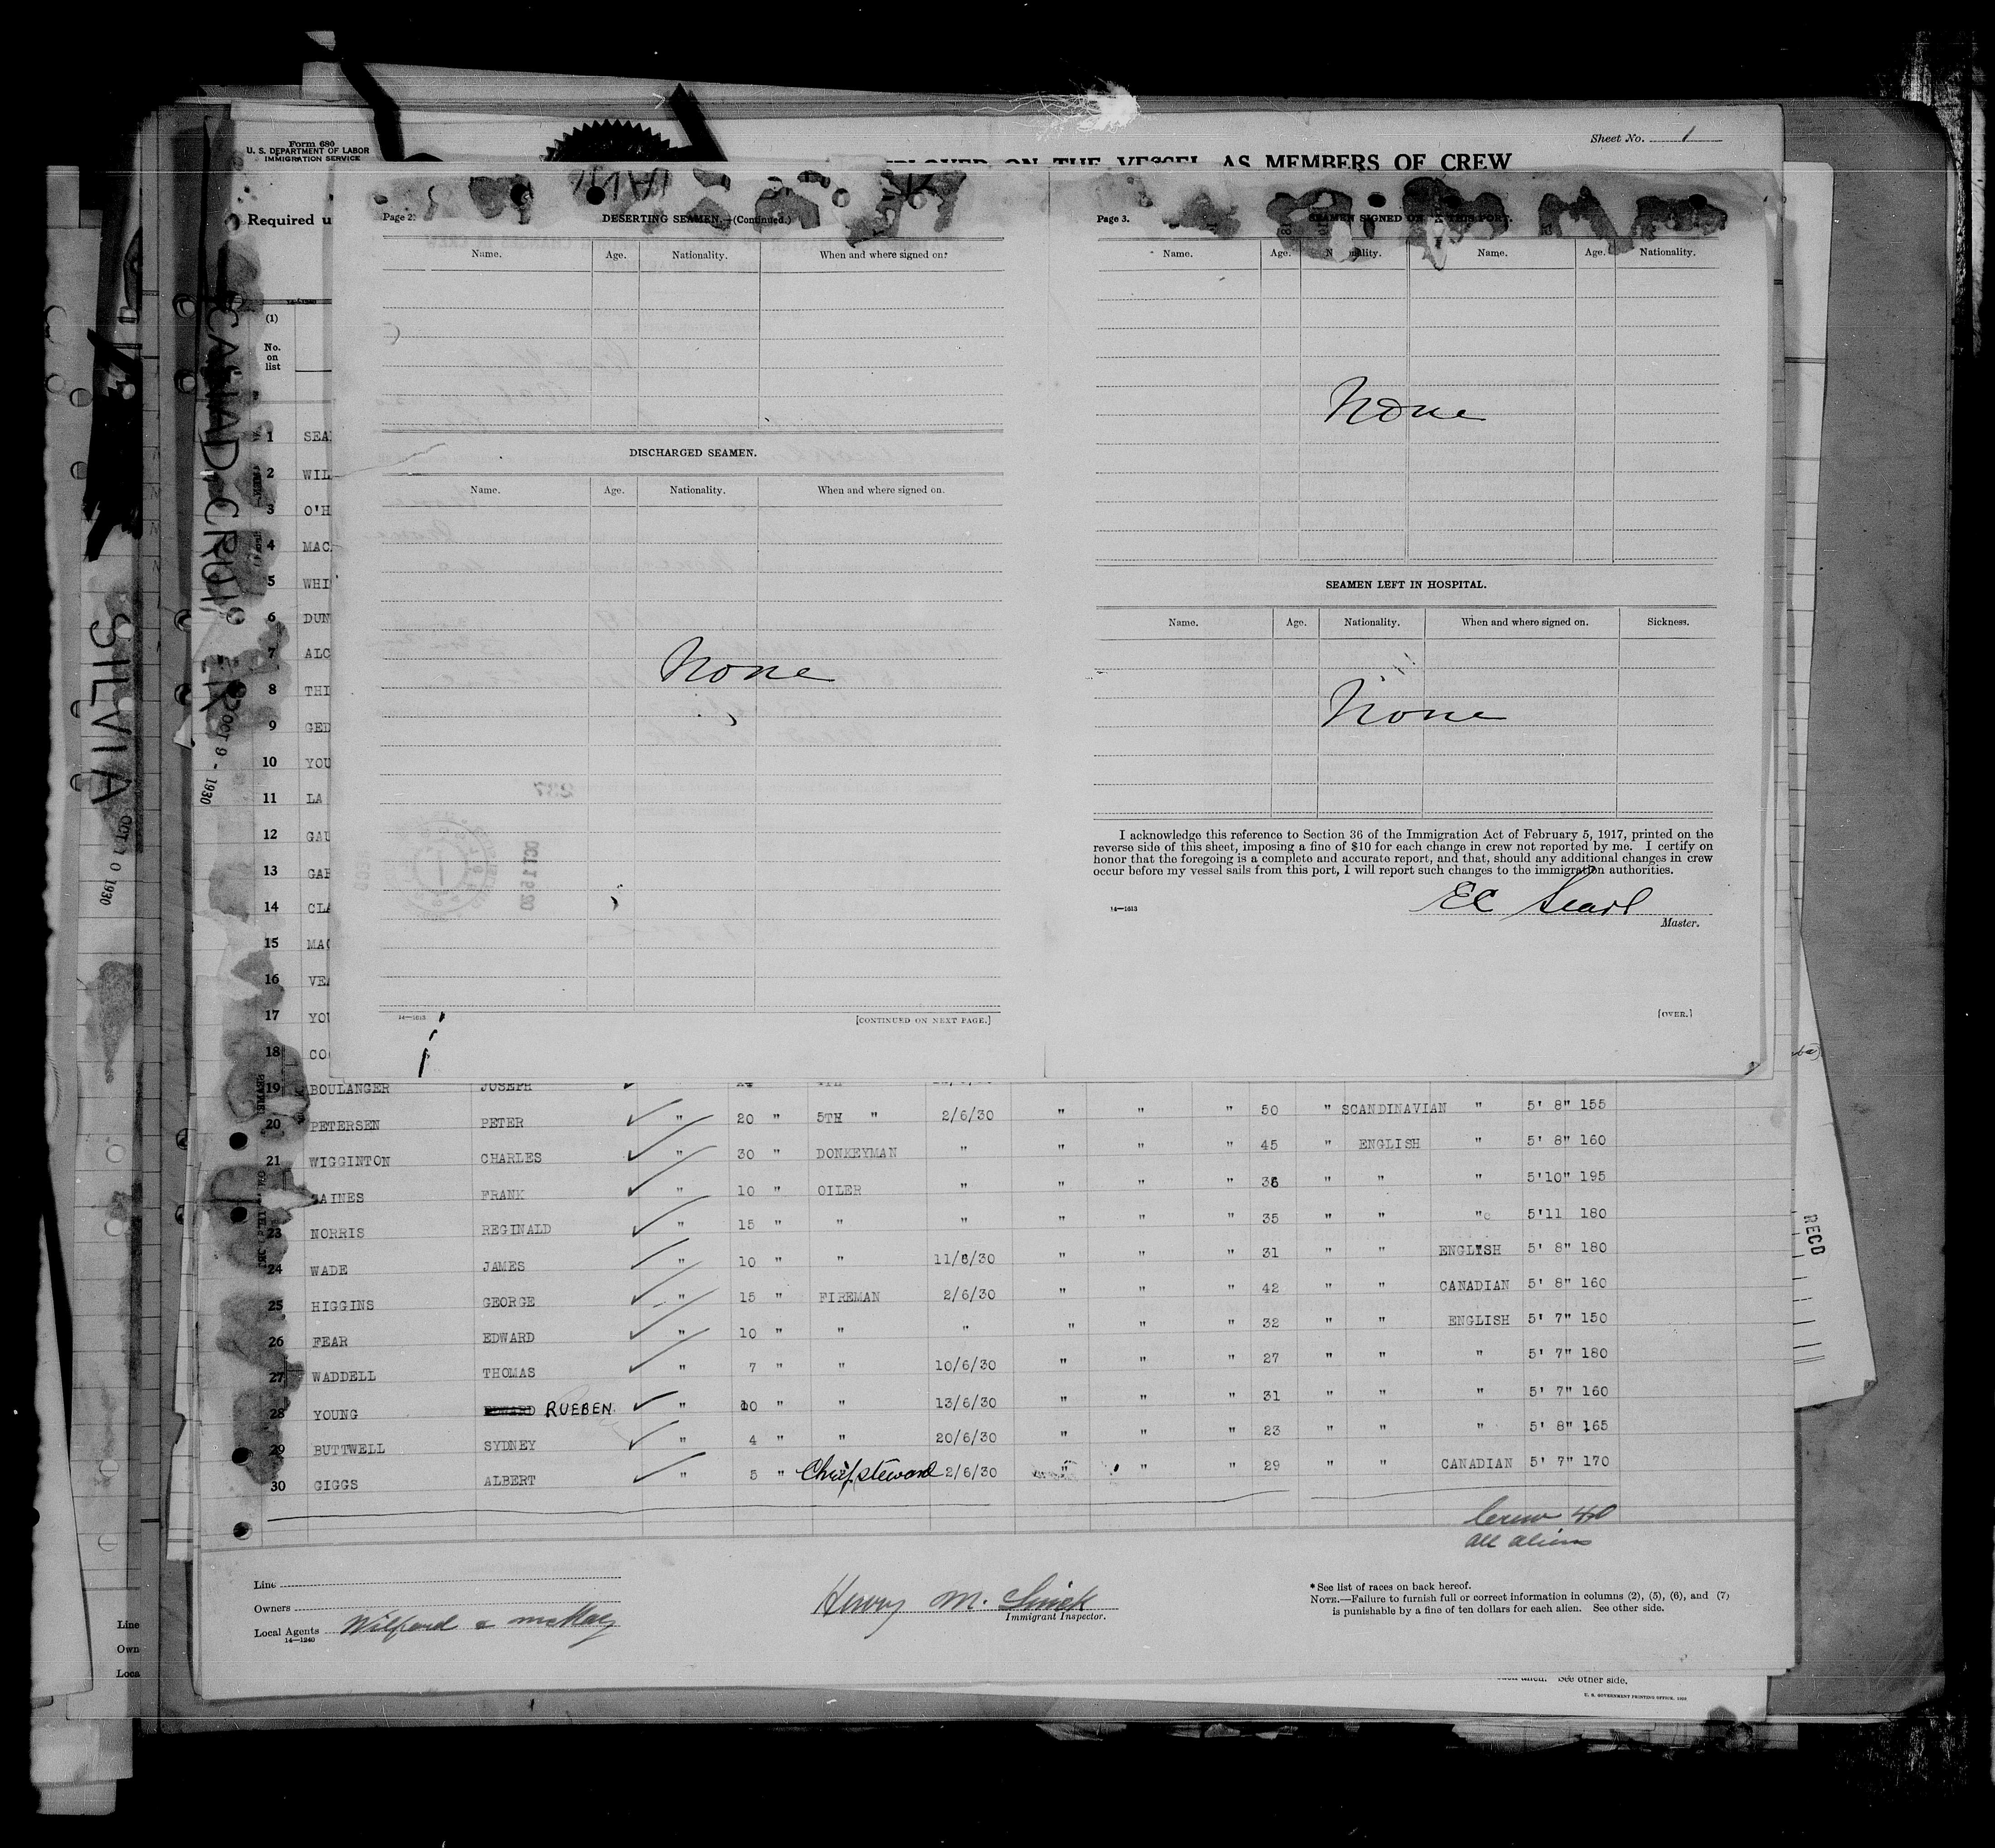 Form 680
U. S. DEPARTMENT OF LABOR
IMMIGRATION SERVICE
Sheet No. 1
ON THE VESSEL AS MEMBERS OF CREW
Required u
(1)
No.
on
list
Page 2.
DESERTING SEAMEN.—(Continued.)
Name. Age. Nationality. When and where signed on.
DISCHARGED SEAMEN.
Name. Age. Nationality. When and where signed on.
None
237
14—1613
[CONTINUED ON NEXT PAGE.]
Page 3.
SEAMEN SIGNED ON THIS PORT.
Name. Age. Nationality. Name. Age. Nationality.
None
SEAMEN LEFT IN HOSPITAL.
Name. Age. Nationality. When and where signed on. Sickness.
None
I acknowledge this reference to Section 36 of the Immigration Act of February 5, 1917, printed on the
reverse side of this sheet, imposing a fine of $10 for each change in crew not reported by me. I certify on
honor that the foregoing is a complete and accurate report, and that, should any additional changes in crew
occur before my vessel sails from this port, I will report such changes to the immigration authorities.
EC Searl
14—1613
Master.
[OVER.]
SILVIA
OCT 10 1930
OCT 9 - 1930
1 SEA
2 WIL
3 O'H
4 MAC
5 WHI
6 DUN
7 ALC
8 THI
9 GED
10 YOU
11 LA
12 GAU
13 GAR
14 CLA
15 MAC
16 VE
17 YOU
18 CO
19 BOULANGER JOSEPH
20 PETERSEN PETER " 20 " 5TH " 2/6/30 " " " 50 " SCANDINAVIAN " 5' 8" 155
21 WIGGINTON CHARLES " 30 " DONKEYMAN " " " " 45 " ENGLISH " 5' 8" 160
GAINES FRANK " 10 " OILER " " " " 36 " " " 5'10" 195
23 NORRIS REGINALD " 15 " " " " " " 35 " " " 5'11 180
24 WADE JAMES " 10 " " 11/8/30 " " " 31 " " ENGLISH 5' 8" 180
25 HIGGINS GEORGE " 15 " FIREMAN 2/6/30 " " " 42 " " CANADIAN 5' 8" 160
26 FEAR EDWARD " 10 " " " " " " 32 " " ENGLISH 5' 7" 150
27 WADDELL THOMAS " 7 " " 10/6/30 " " " 27 " " " 5' 7" 180
28 YOUNG EDWARD RUEBEN " 10 " " 13/6/30 " " " 31 " " " 5' 7" 160
29 BUTTWELL SYDNEY " 4 " " 20/6/30 " " " 23 " " " 5' 8" 165
30 GIGGS ALBERT " 5 " Chief steward 2/6/30 " " " 29 " " CANADIAN 5' 7" 170
Crew 40
all aliens
Line
Owners
Local Agents
14—1240
Henry M.
Immigrant Inspector.
* See list of races on back hereof.
NOTE.—Failure to furnish full or correct information in columns (2), (5), (6), and (7)
is punishable by a fine of ten dollars for each alien. See other side.
RECD
Line
Own
Loca
See other side.
U. S. GOVERNMENT PRINTING OFFICE